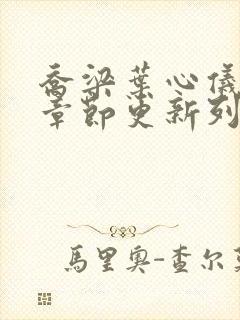 喬梁葉心儀
章節更新列
馬里奧-查尔